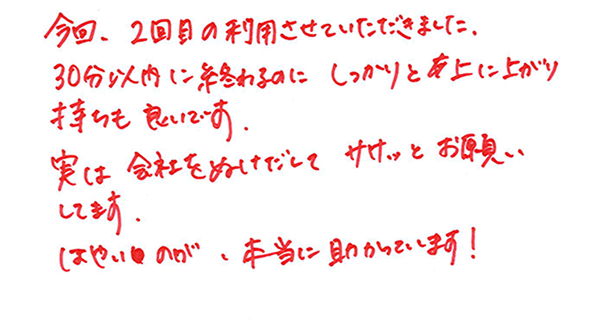 今回、2回目の利用させていただきました。
30分以内に終わるのに しっかりと 右上に上がり
持ちも良いです。
実は 会社をぬけだして ササッと お願い
してます。
はやいのが、本当に助かっています!